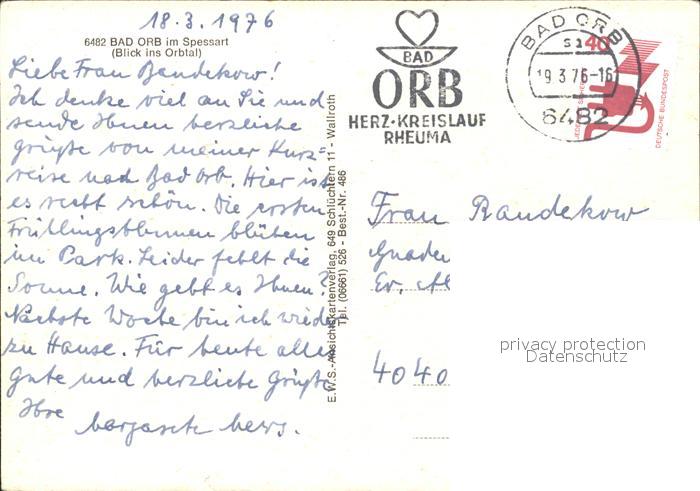 18.3.1976
6482 BAD ORB im Spessart
(Blick ins Orbtal)
Liebe Frau Bandekow!
Ich denke viel an Sie und
sende Ihnen herzliche
grüße von meiner Kurz=
reise nach Bad Orb. Hier ist
es recht schön. Die ersten
Frühlingsblumen blühen
im Park. Leider fehlt die
Sonne. Wie geht es Ihnen?
Nächste Woche bin ich wieder
zu Hause. Für heute alles
gute und herzliche Grüße
Ihre
E.W.S.-Ansichtskartenverlag, 649 Schlüchtern 11 - Wallroth
Tel. (06661) 526 - Best.-Nr. 486
BAD
ORB
HERZ·KREISLAUF
RHEUMA
BAD ORB
19.3.76-16
6482
40
DEUTSCHE BUNDESPOST
Frau Bandekow
Gnaden
Ev. Al
4040
privacy protection
Datenschutz